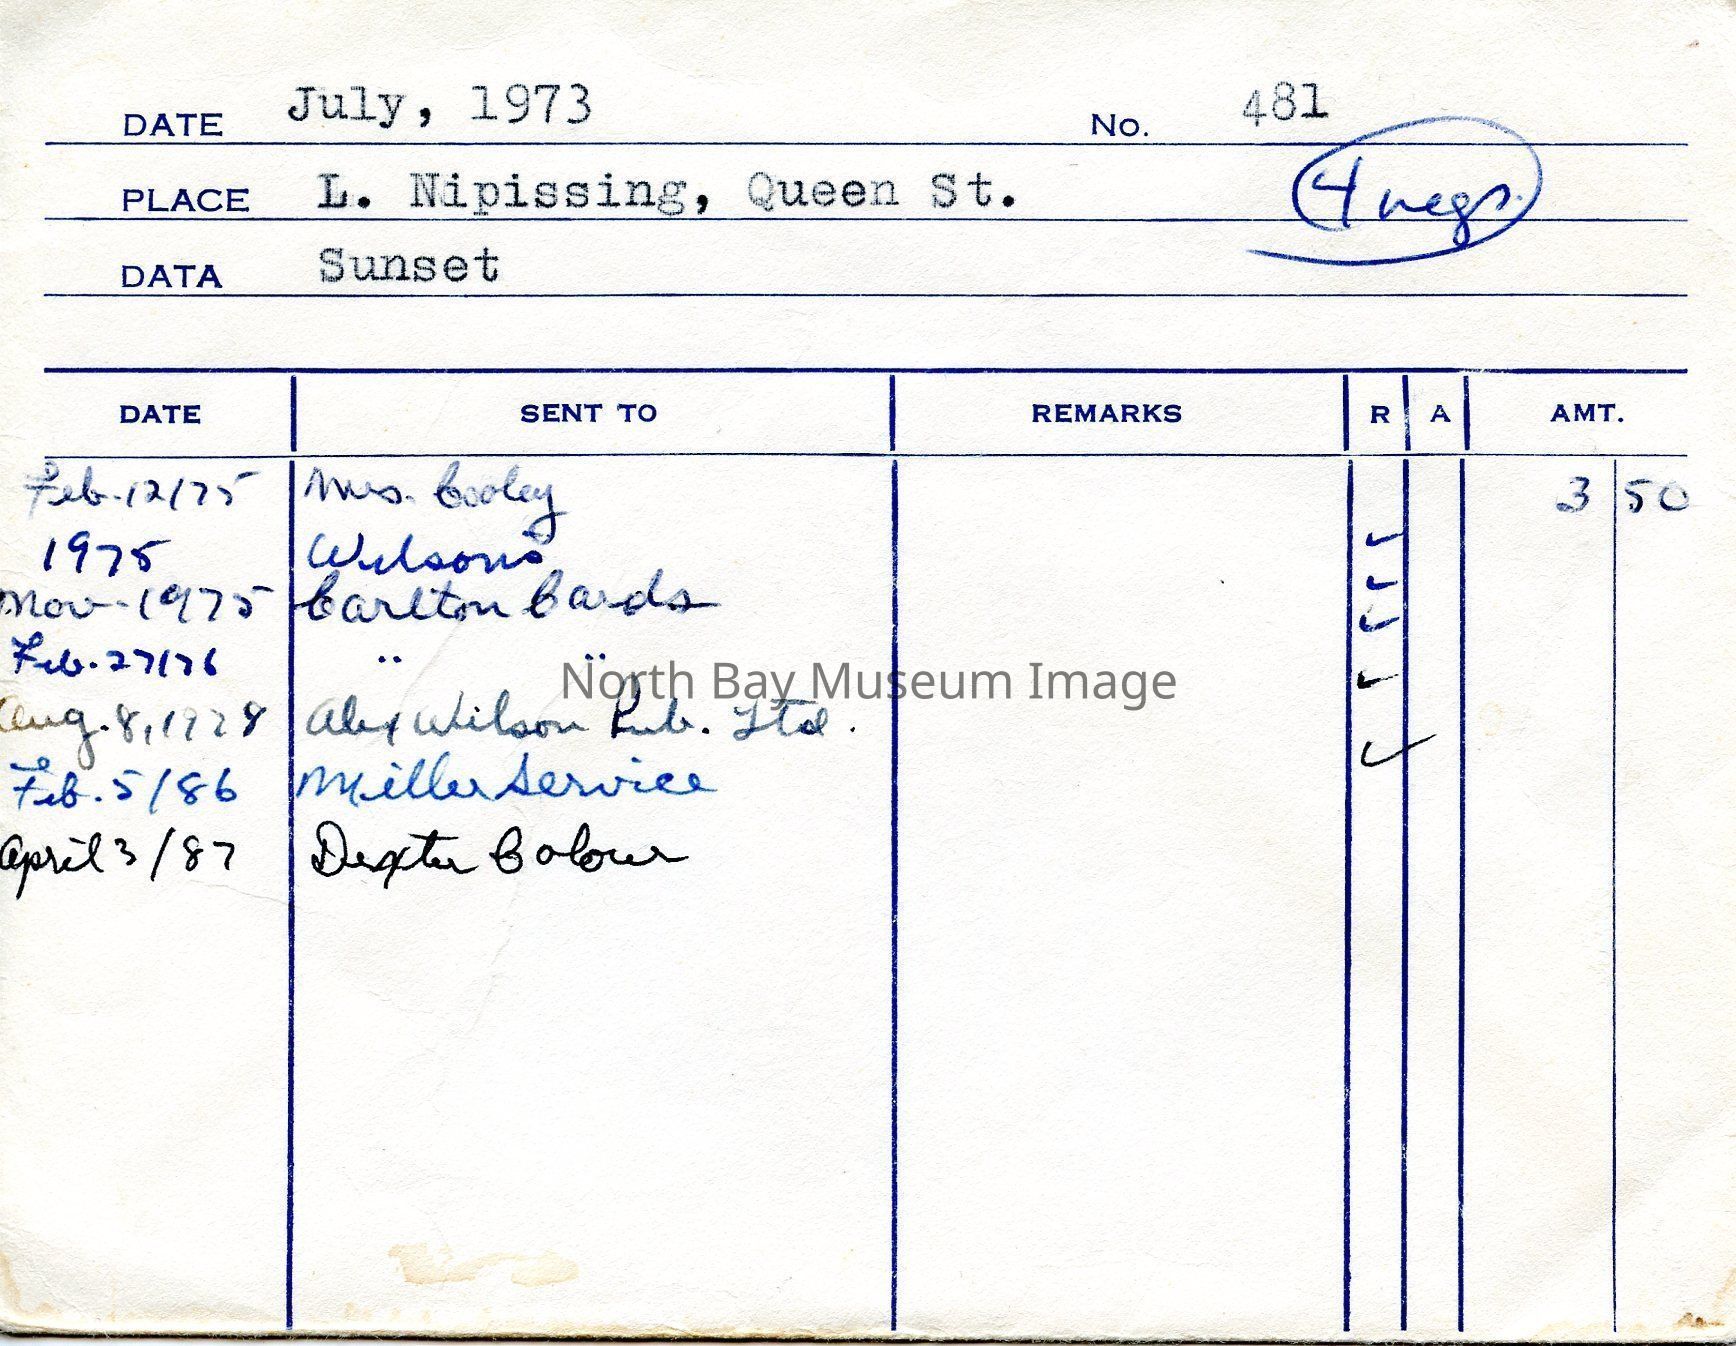 DATE July, 1973 No. 481
PLACE L. Nipissing, Queen St. 4 negs.
DATA Sunset
DATE SENT TO REMARKS R A AMT.
Feb. 12/75 Mrs. Cooley 3 50
1975 Wilsons ✓
✓
Nov. 1975 Carlton Cards ✓
Feb. 27/76 " " ✓
North Bay Museum Image
Aug. 8, 1978 Alex Wilson Pub. Ltd. ✓
Feb. 5/86 Miller Service
April 3/87 Dexter Colour